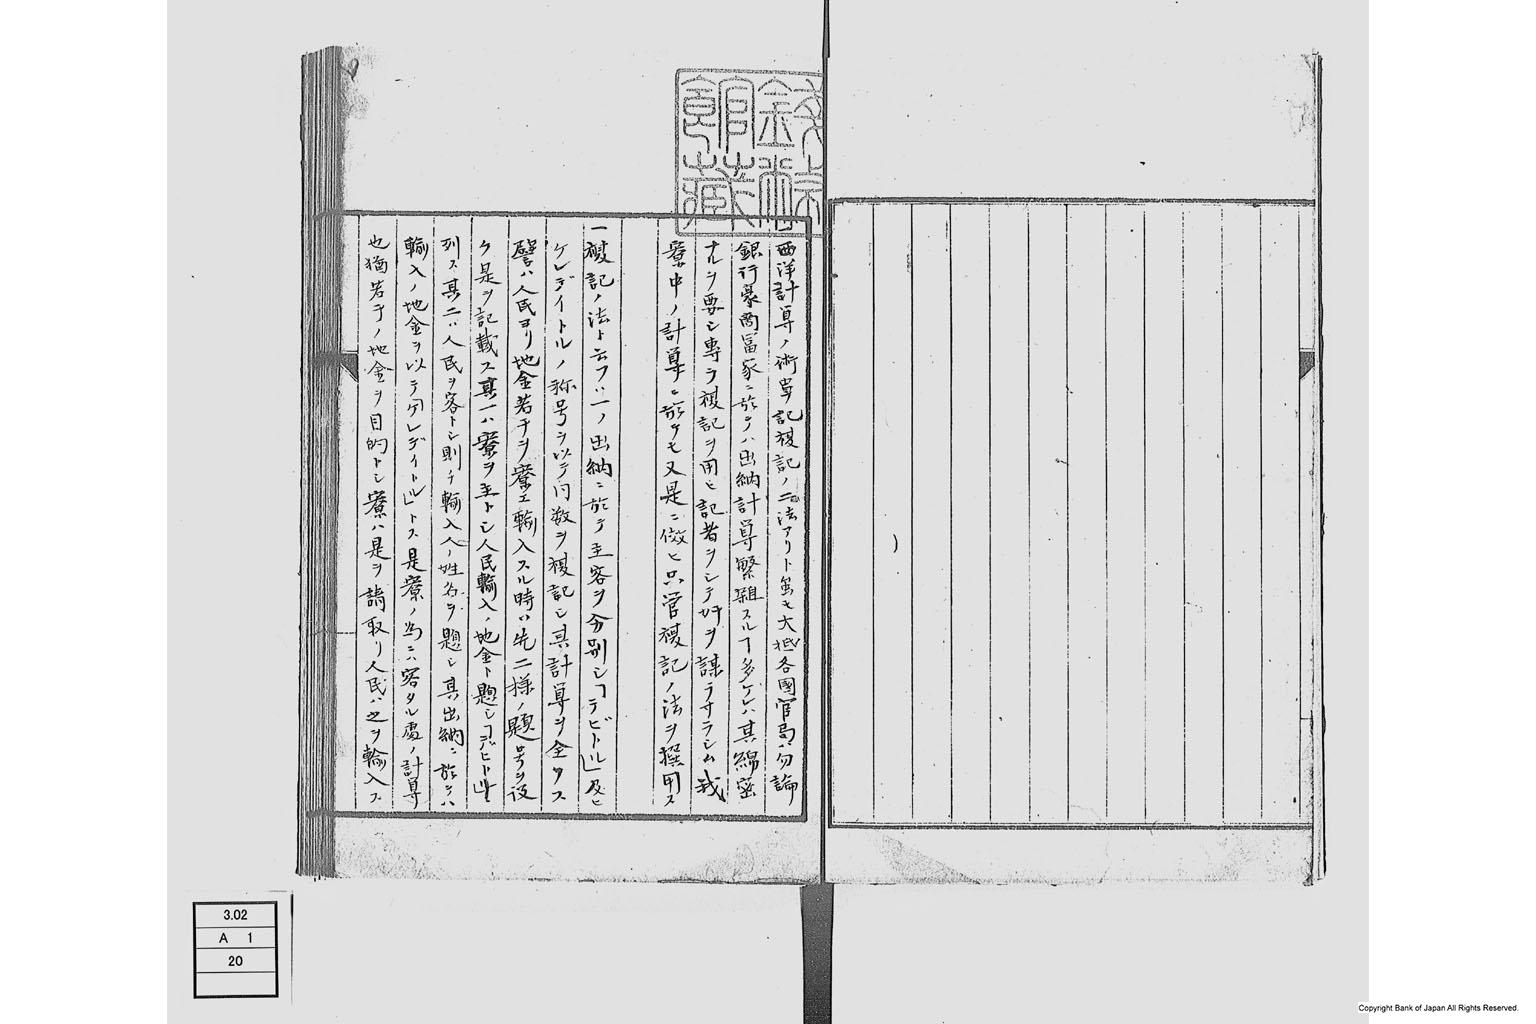 西洋計算ノ術単記複記ノ二法アリト雖モ大抵各國官局ハ勿論
銀行豪商冨家ニ於テハ出納計算繁雜スルヿ多ケレハ其綿密
ナルヲ要シ専ラ複記ヲ用ヒ記者ヲシテ奸ヲ謀ラサラシム我
寮中ノ計算ニ於ケモ又是ニ倣ヒ只管複記ノ法ヲ撰用ス
一複記ノ法ト云フハ一ノ出納ニ於テ主客ヲ分別シ「デビトル」及ヒ
ケレデイトルノ称号ヲ以テ同数ヲ複記シ其計算ヲ全ウス
譬ハ人民ヨリ地金若干ヲ寮エ輸入スル時ハ先二様ノ題号ヲ設
ケ是ヲ記載ス其一ハ寮ヲ主トシ人民輸入ノ地金ト題シ「デビトル」ニ
列ス其二ハ人民ヲ客トシ則チ輸入人ノ姓名ヲ題シ其出納ニ於テハ
輸入ノ地金ヲ以テ「ケレデイトル」トス是寮ノ為ニハ客タル處ノ計算
也猶若干ノ地金ヲ目的トシ寮ハ是ヲ請取リ人民ハ之ヲ輸入ス
3.02
A 1
20
Copyright Bank of Japan All Rights Reserved.